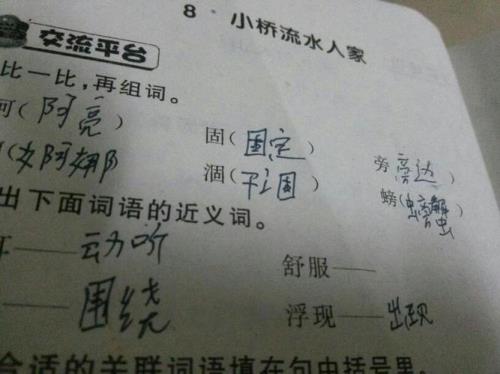 8 小桥流水人家
交流平台
比一比，再组词。
(阿亮) 固(固定) 旁(旁边)
(婀娜) 涸(干涸) 螃(螃蟹)
出下面词语的近义词。
耳——动听 舒服——
——围绕 浮现——出现
合适的关联词语填在句中括号里。